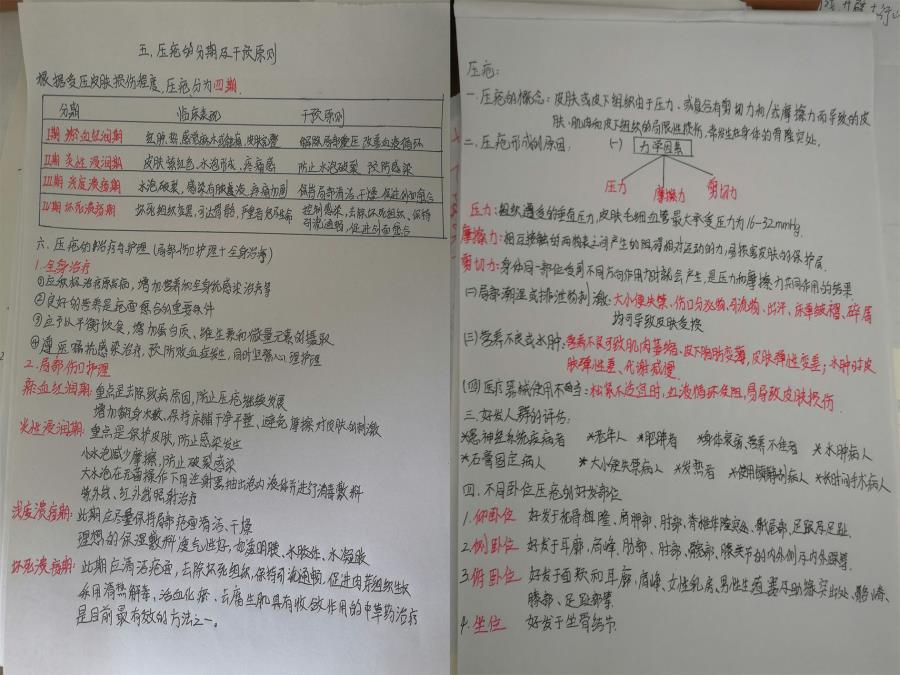 五、压疮的分期及干预原则
根据受压皮肤损伤程度,压疮分为四期.
分期 临床表现 干预原则
I期 瘀血红润期 红肿、热、感觉麻木或触痛,皮肤完整 解除局部受压 改善血液循环
II期 炎性浸润期 皮肤紫红色、水泡形成、疼痛感 防止水泡破裂 预防感染
III期 浅度溃疡期 水泡破裂、感染有脓液流、疼痛加剧 保持局部清洁、干燥、促进创面愈合
IV期 坏死溃疡期 坏死组织发黑,可达骨骼,严重者危及生命 控制感染,去除坏死组织、保持引流通畅,促进创面愈合
六、压疮的治疗与护理(局部伤口护理+全身治疗)
1.全身治疗
①应积极治疗原发病,增加营养和全身抗感染治疗等
②良好的营养是疮面愈合的重要条件
③应予以平衡饮食,增加蛋白质、维生素和微量元素的摄取
④遵医嘱抗感染治疗,预防败血症发生,同时加强心理护理
2.局部伤口护理
瘀血红润期:重点是去除致病原因,防止压疮继续发展
增加翻身次数、保持床铺干净平整,避免摩擦对皮肤的刺激
炎性浸润期:重点是保护皮肤,防止感染发生
小水泡减少摩擦,防止破裂感染
大水泡在无菌操作下用注射器抽出泡内液体并进行消毒敷料
紫外线、红外线照射治疗
浅度溃疡期:此期应尽量保持局部疮面清洁、干燥
理想的保湿敷料透气性好,如透明膜、水胶体、水凝胶
坏死溃疡期:此期应清洁疮面,去除坏死组织,保持引流通畅,促进肉芽组织生长
采用清热解毒、活血化瘀、去腐生肌具有收敛作用的中草药治疗
是目前最有效的方法之一。
压疮:
一.压疮的概念:皮肤或皮下组织由于压力、或复合有剪切力和/或摩擦力而导致的皮
肤、肌肉和皮下组织的局限性损伤,常发生在身体的骨隆突处。
二、压疮形成的原因: (一) 力学因素
压力 摩擦力 剪切力
压力:组织遭受的垂直压力,皮肤毛细血管最大承受压力为16-32mmHg.
摩擦力:相互接触的两物表之间产生的阻碍相对运动的力,易损害皮肤的保护层.
剪切力:身体同一部位受到不同方向作用力时就会产生,是压力和摩擦力共同作用的结果.
(二)局部潮湿或排泄物刺激:大小便失禁、伤口分泌物、引流物、出汗、床单皱褶、碎屑
均可导致皮肤变换
(三)营养不良或水肿:营养不良可致肌肉萎缩、皮下脂肪变薄,皮肤弹性变差;水肿时皮
肤弹性差、代谢减慢.
(四)医疗器械使用不当:松紧不适宜时,血液循环受阻,易导致皮肤损伤.
三.好发人群的评估:
*患神经系统疾病者 *老年人 *肥胖者 *身体衰弱、营养不佳者 *水肿病人
*石膏固定病人 *大小便失禁病人 *发热者 *使用镇静剂病人 *长时间手术病人
四.不同卧位压疮的好发部位
1.仰卧位 好发于枕骨粗隆、肩胛部、肘部、脊椎体隆突处、骶尾部、足跟及足趾.
2.侧卧位 好发于耳廓、肩峰、肋部、肘部、髋部、膝关节的内外侧及内外踝等.
3.俯卧位 好发于面颊和耳廓、肩峰、女性乳房、男性生殖器、肋缘突出处、髂嵴、
膝部、足趾部等.
4.坐位 好发于坐骨结节.